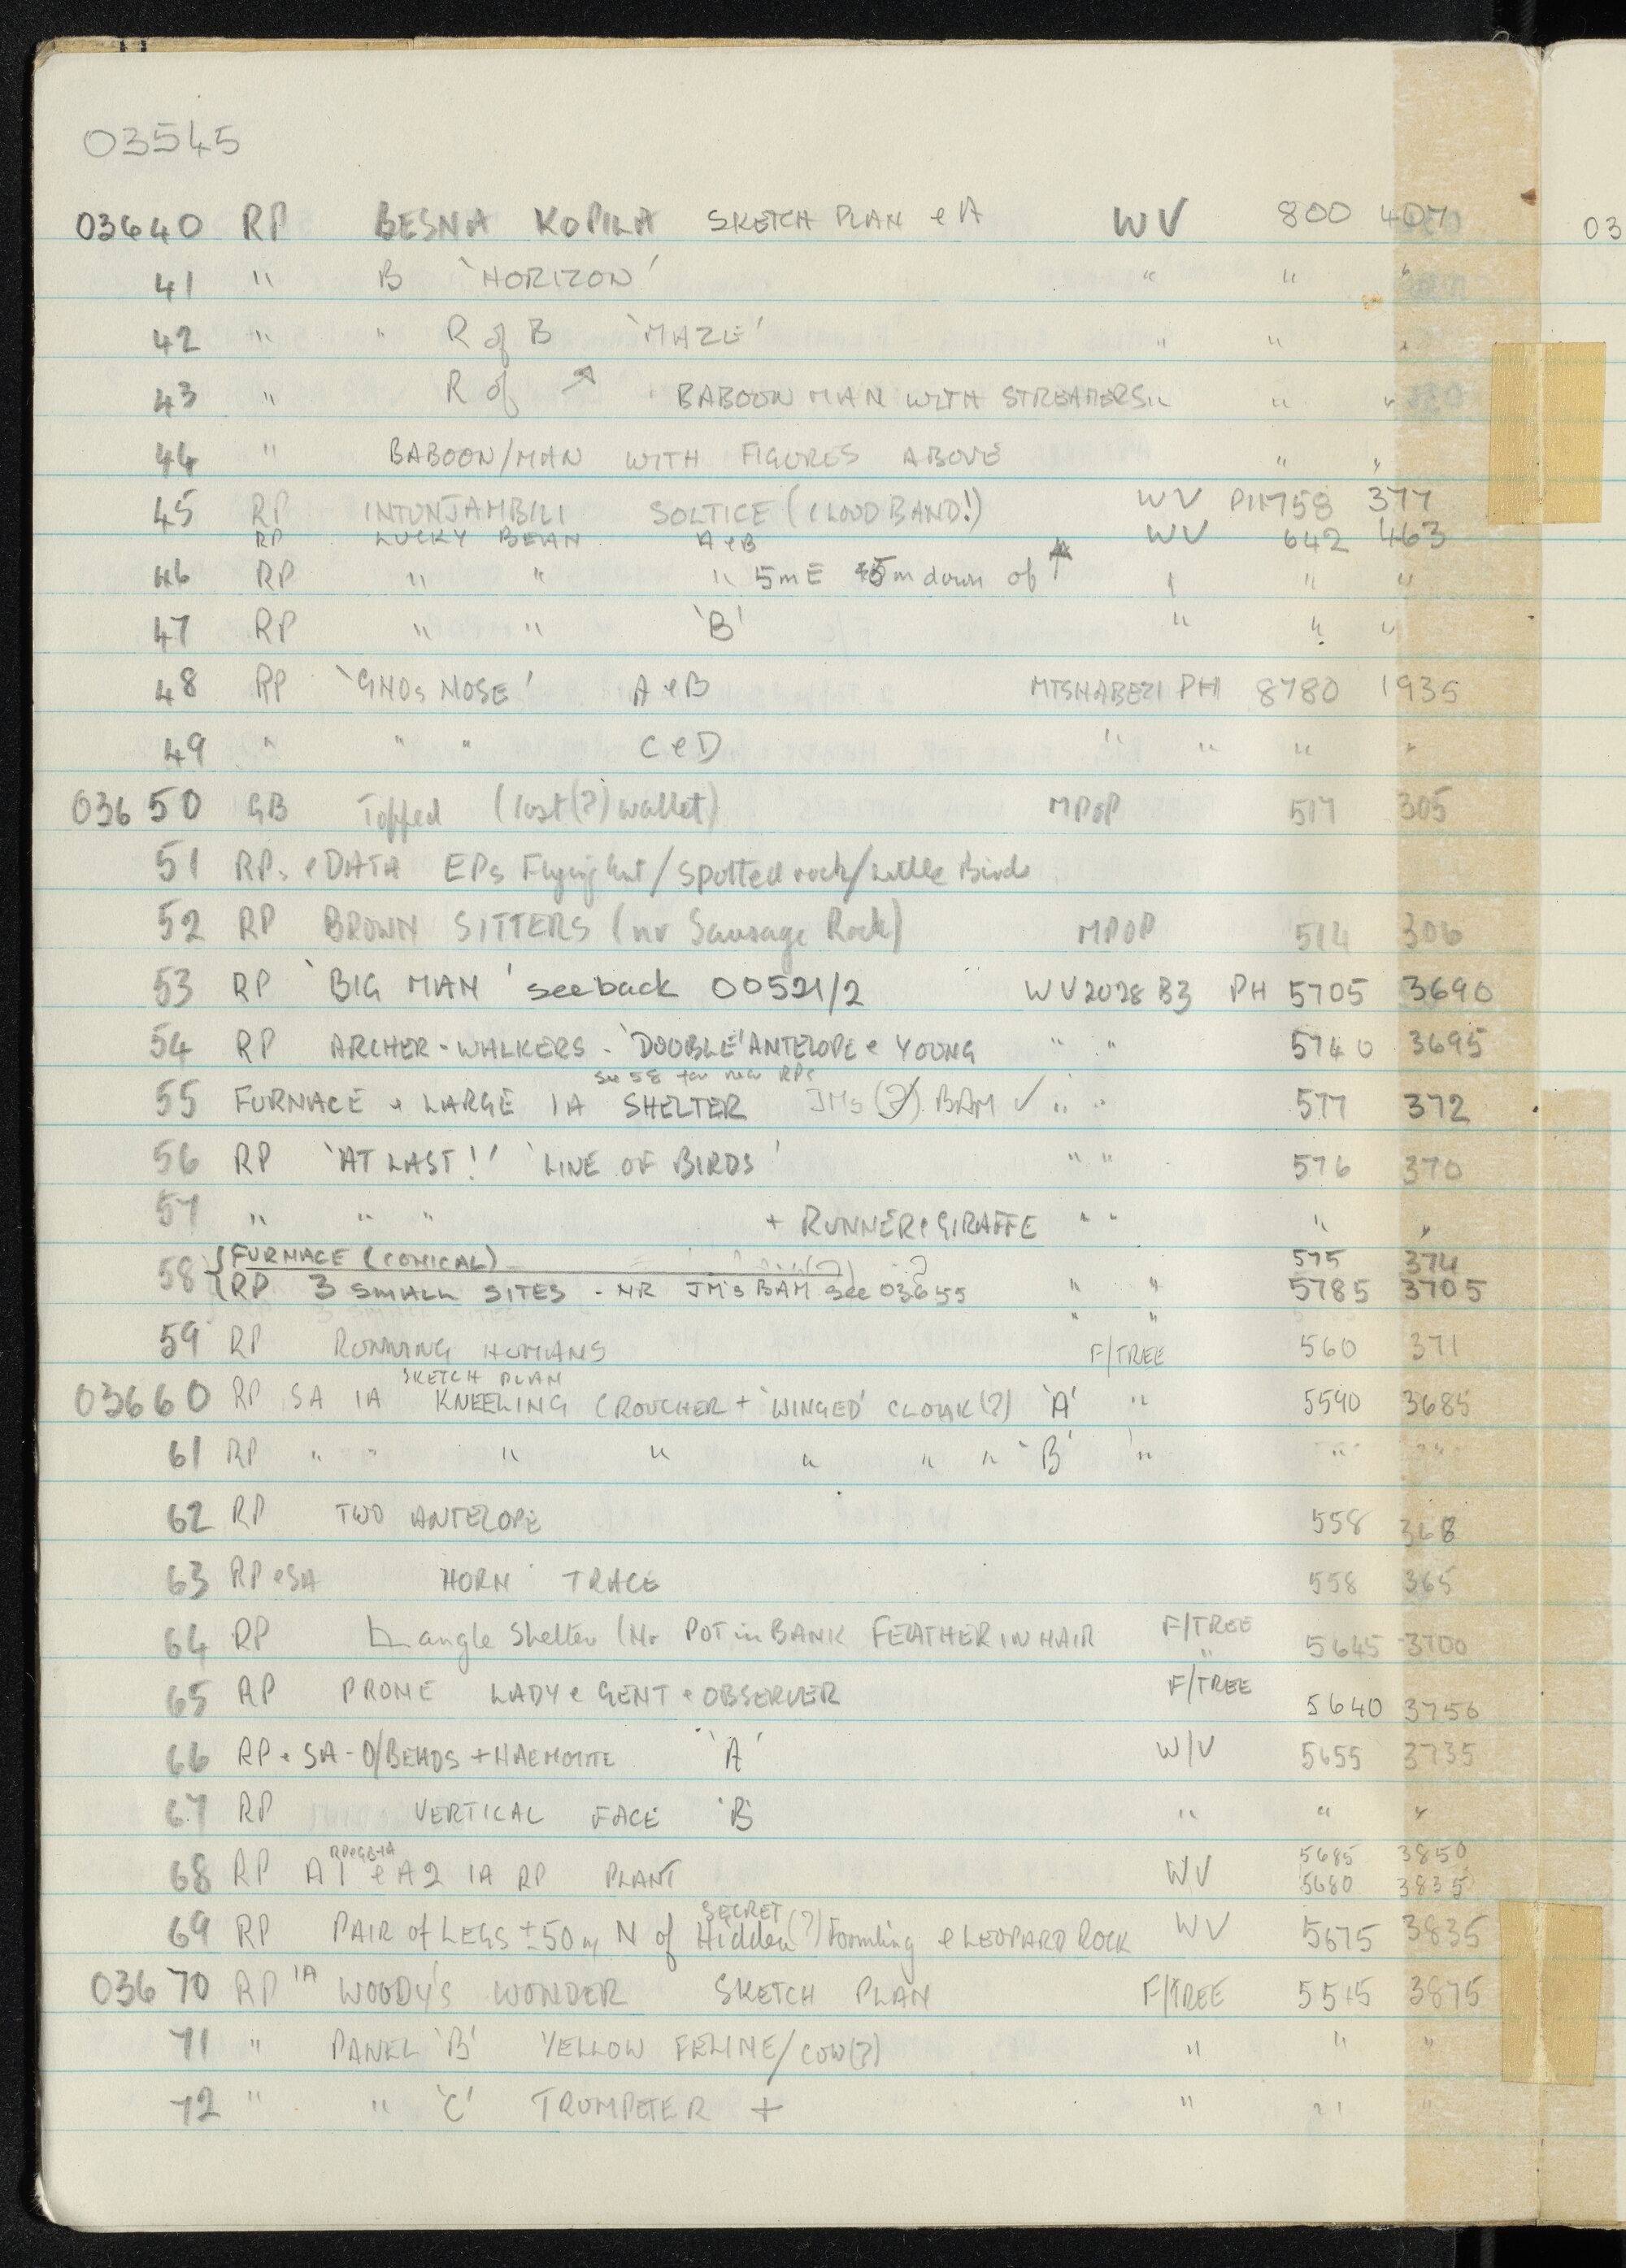 03545
03640 RP BESNA KOPILA SKETCH PLAN & A WV 800 407
41 " B 'HORIZON' " " "
42 " " R of B 'MAZE' " " "
43 " R of ↗ BABOON MAN WITH STREAMERS " " "
44 " BABOON/MAN WITH FIGURES ABOVE " "
45 RP INTUNJAMBILI SOLTICE (CLOUDBAND!) WV PH 758 377
RP LUCKY BEAN A & B WV 642 463
46 RP " " " 5m E 5m down of ↑ " " "
47 RP " " 'B' " " "
48 RP 'GNDs NOSE' A & B MTSHABEZI PH 8780 1935
49 " " " C & D " " " "
03650 GB Topped (lost(?) wallet) MPOP 517 305
51 RPs & DATA EPs Flying Ant/Spotted rock/Little Birds
52 RP BROWN SITTERS (nr Sausage Rock) MPOP 514 306
53 RP 'BIG MAN' see back 00521/2 WV 2028 B3 PH 5705 3690
54 RP ARCHER - WALKERS - 'DOUBLE' ANTELOPE & YOUNG " " 5740 3695
see 58 for new RPs
55 FURNACE & LARGE IA SHELTER JMs (?) BAM ✓ " " 577 372
56 RP 'AT LAST!' 'LINE OF BIRDS' " " 576 370
57 " " " + RUNNER & GIRAFFE " " " "
58 { FURNACE (CONICAL) 575 374
{ RP 3 SMALL SITES - NR JM's BAM see 03655 " " 5785 3705
" "
59 RP RUNNING HUMANS F/TREE 560 371
SKETCH PLAN
03660 RP SA IA KNEELING CROUCHER + 'WINGED' CLOAK (?) 'A' " 5590 3685
61 RP " " " " " " " 'B' " " "
62 RP TWO ANTELOPE 558 368
63 RP & SA HORN TRACE 558 365
64 RP angle Shelter (Nr POT in BANK FEATHER IN HAIR F/TREE 5645 3700
"
65 RP PRONE LADY & GENT & OBSERVER F/TREE 5640 3756
66 RP & SA - O/BEADS + HAEMOTITE 'A' W/V 5655 3735
67 RP VERTICAL FACE 'B' " " "
RP & GB-IA 5685 3850
68 RP A1 & A2 IA RP PLANT WV 5680 3835
SECRET
69 RP PAIR of LEGS ± 50m N of Hidden (?) Formling & LEOPARD ROCK WV 5675 3835
03670 RP IA WOODY'S WONDER SKETCH PLAN F/TREE 5515 3875
71 " PANEL 'B' YELLOW FELINE/COW(?) " " "
72 " " 'C' TRUMPETER + " " "
03